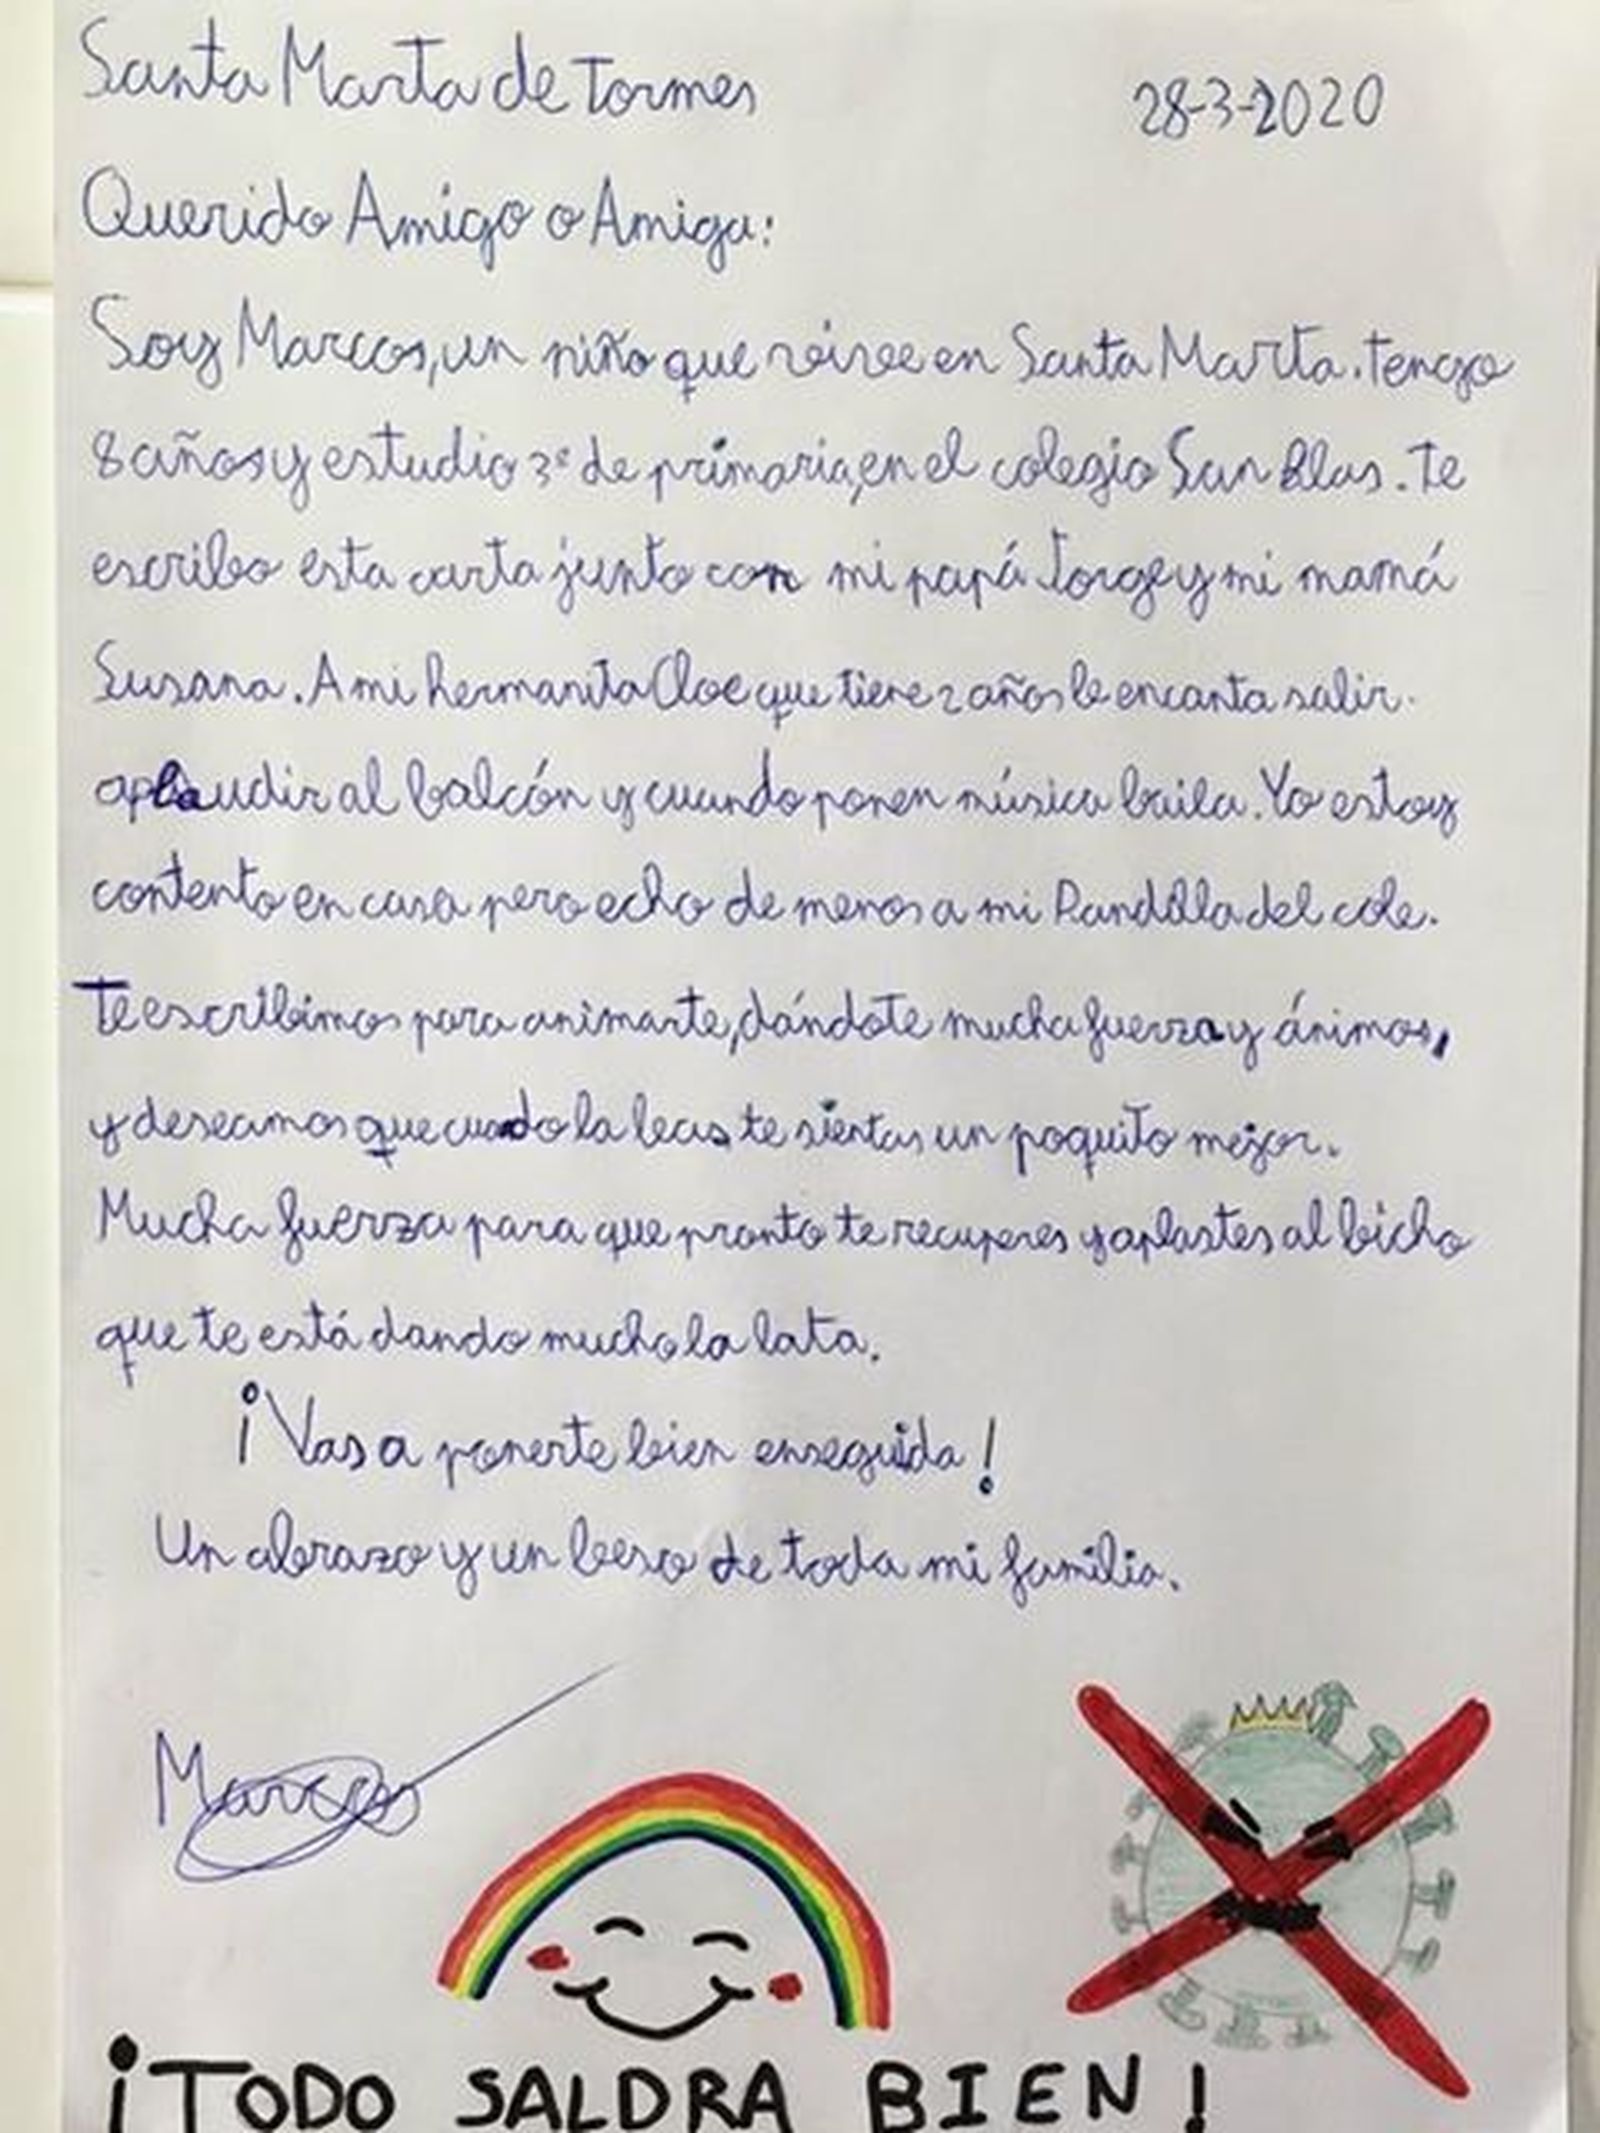 Santa Marta de Tormes 28-3-2020
Querido Amigo o Amiga:
Soy Marcos, un niño que vive en Santa Marta. Tengo
8 años y estudio 3º de primaria, en el colegio San Blas. Te
escribo esta carta junto con mi papá Jorge y mi mamá
Susana. A mi hermanita Cloe que tiene 2 años le encanta salir
aplaudir al balcón y cuando ponen música baila. Yo estoy
contento en casa pero echo de menos a mi Pandilla del cole.
Te escribimos para animarte, dándote mucha fuerza y ánimos,
y deseamos que cuando la leas te sientas un poquito mejor.
Mucha fuerza para que pronto te recuperes y aplastes al bicho
que te está dando mucho la lata.
¡Vas a ponerte bien enseguida!
Un abrazo y un beso de toda mi familia.
Marcos
¡TODO SALDRA BIEN!